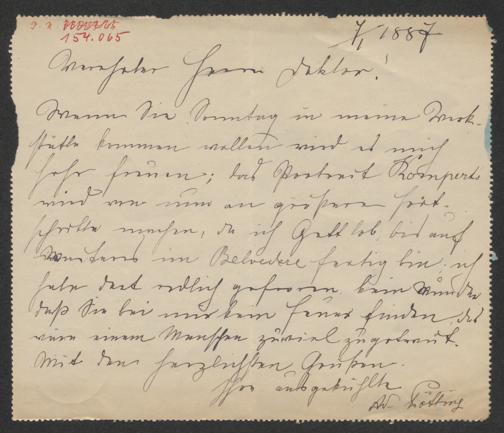 154.065
7/1887
Verehrter Herr Doktor!
Wenn Sie Sonntag in meine Werk-
stätte kommen wollen wird es mich
sehr freuen; das Portrait Kompert
wird von nun an größere Fort-
schritte machen, da ich Gott lob, bis auf
Weiteres im Belvedere fertig bin; ich
habe dort redlich gefroren, kein Wunder
daß Sie bei mir kein Feuer finden, das
wäre einem Menschen zuviel zugetraut.
Mit den herzlichsten Grüßen
Ihre ausgekühlte
Ad. Pötting